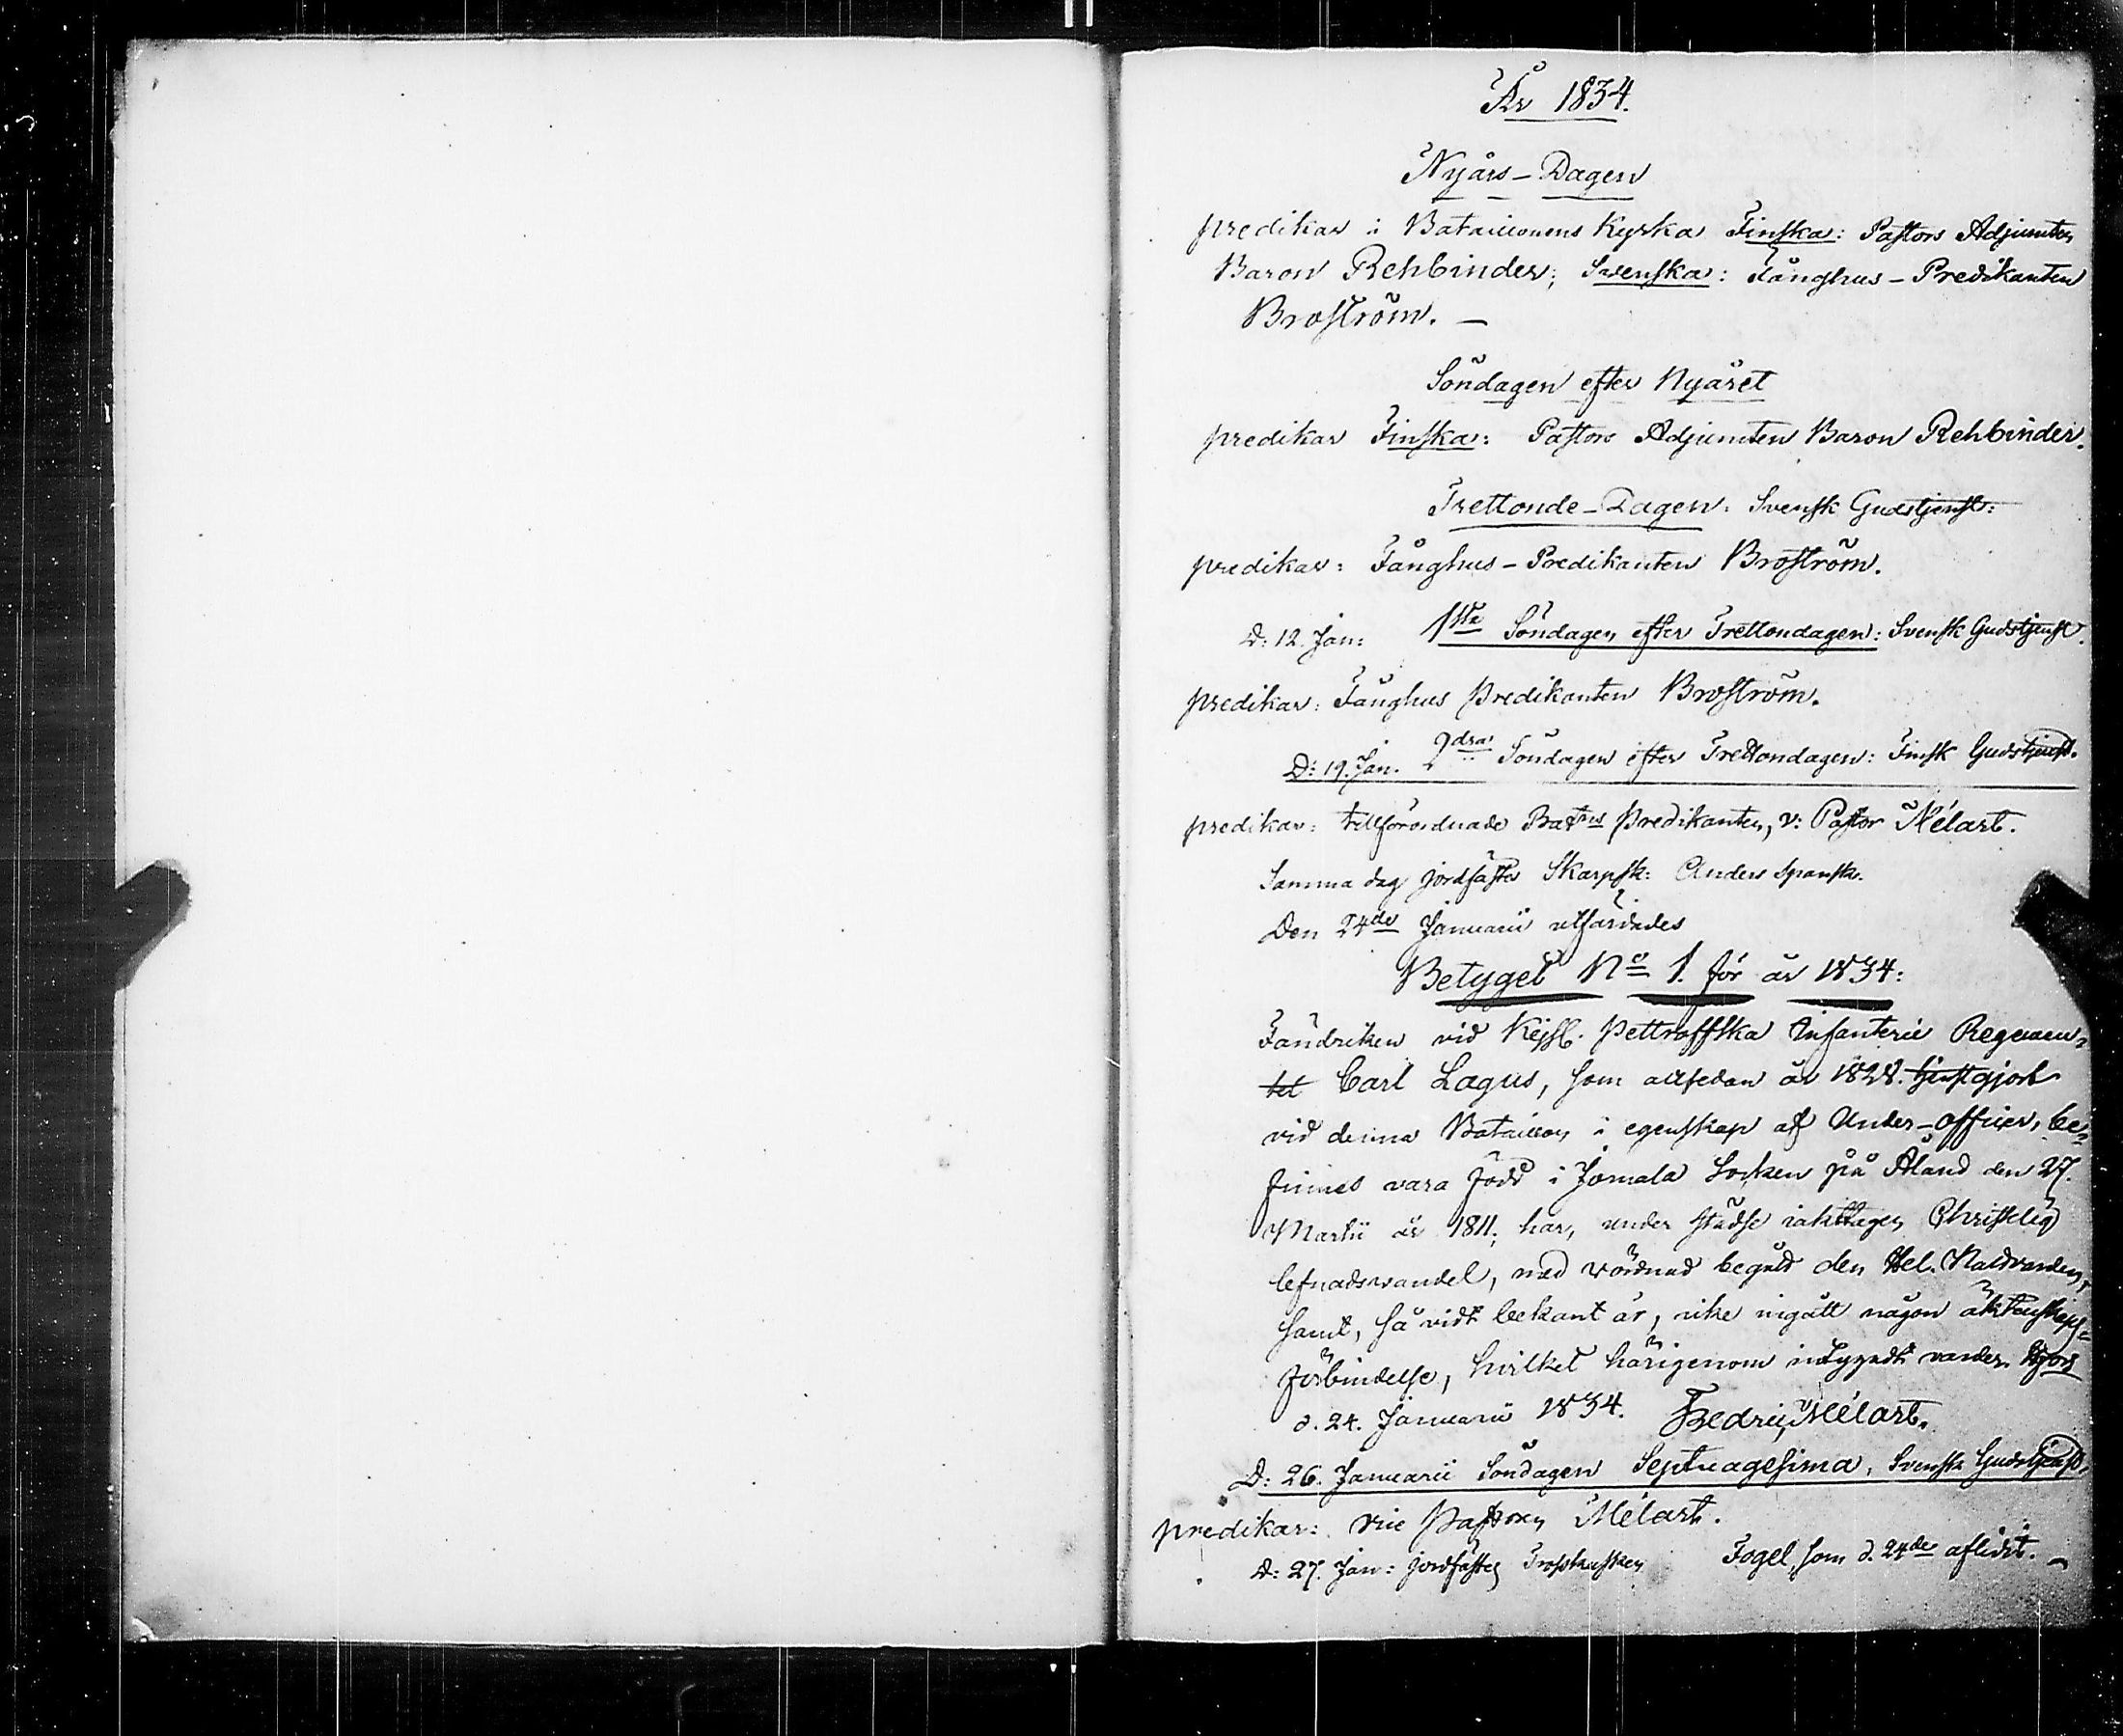 År 1834.
Nyårs-Dagen
predikar i Bataillonens Kyrka Finska: Pastors Adjuncten
Baron Rehbinder; Svenska: Fånghus-Predikanten
Broström. —
Söndagen efter Nyåret
predikar Finska: Pastors Adjuncten Baron Rehbinder.
Trettonde-Dagen: Svensk Gudstjenst:
predikar: Fånghus-Predikanten Broström.
D: 12. Jan: 1sta Söndagen efter Trettondagen: Svensk Gudstjenst.
predikar: Fånghus Predikanten Broström.
D: 19. Jan. 2dra Söndagen efter Trettondagen: Finsk Gudstjenst.
predikar: tillförordnade Batns Predikanten, v: Pastor Mélart.
Samma dag jordfästes Skarpsk: Anders Spansk.
Den 24de Januarii utfärdades
Betyget No 1. för år 1834:
Fändriken vid Kejsl. Pettroffska Infanterie Regemen-
tet Carl Lagus, som allsedan år 1828. tjenstgjort
vid denna Bataillon i egenskap af Under-officer, be-
finnes vara född i Jomala Socken på Åland den 27.
Martii år 1811; har, under städse iakttagen Christelig
lefnadsvandel, med vördnad begått den Hel. Nattvarden,
samt, så vidt bekant är, icke ingått någon äktenskaps-
förbindelse, hvilket härigenom intygadt varder.
d. 24. Januarii 1834. Fredric Mélart.
D: 26. Januarii Söndagen Septuagesima, Svensk Gudstjenst.
predikar: vice Pastoren Mélart.
D: 27. Jan: jordfästes Trosskusken Fogel, som d. 24de aflidit. —